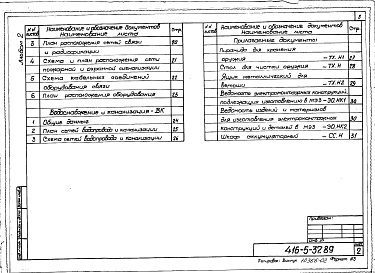 3
Альбом 2
№№ листов
Наименование и обозначение документов
Наименование листа
Стр.
3 План расположения сетей связи 20
и радиофикации
4 Схема и план расположения сети 21
пожарной и охранной сигнализации
5 Схема кабельных соединений 22
оборудования связи
6 План расположения оборудования 23
Водоснабжение и канализация - ВК
1 Общие данные 24
2 План сетей водопровода и канализации 25
3 Схема сетей водопровода и канализации 26
№№ листов
Наименование и обозначение документов
Наименование листа
Стр.
Прилагаемые документы:
Пирамида для хранения
оружия - ТХ.Н1 27
Стол для чистки оружия - ТХ.Н 28
Ящик металлический для
ветоши - ТХ.Н2 29
Ведомость электромонтажных конструкций,
подлежащих изготовлению в МЭЗ - ЭО.НК1 30
Ведомость изделий и материалов
для изготовления электромонтажных 30
конструкций и деталей в МЭЗ - ЭО.НК2
Шкаф аккумуляторный - СС.Н 31
Привязан:
Инв.№
416-5-32.89
2
Формат А3